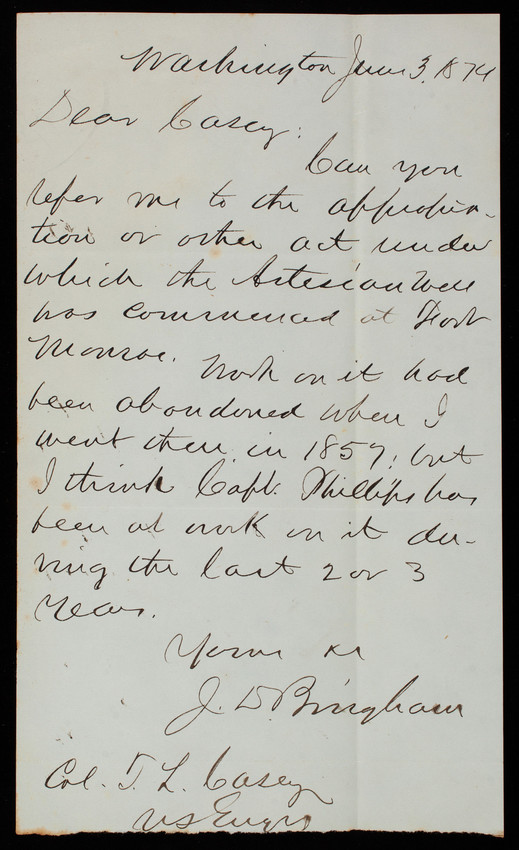 Washington June 3, 1874
Dear Casey:
Can you
refer me to the appropria-
tion or other act under
which the Artesian Well
was commenced at Fort
Monroe. Work on it had
been abandoned when I
went there in 1857; but
I think Capt. Phillips has
been at work on it du-
ring the last 2 or 3
years.
Yours
J. D. Bingham
Col. T. L. Casey
US Engrs